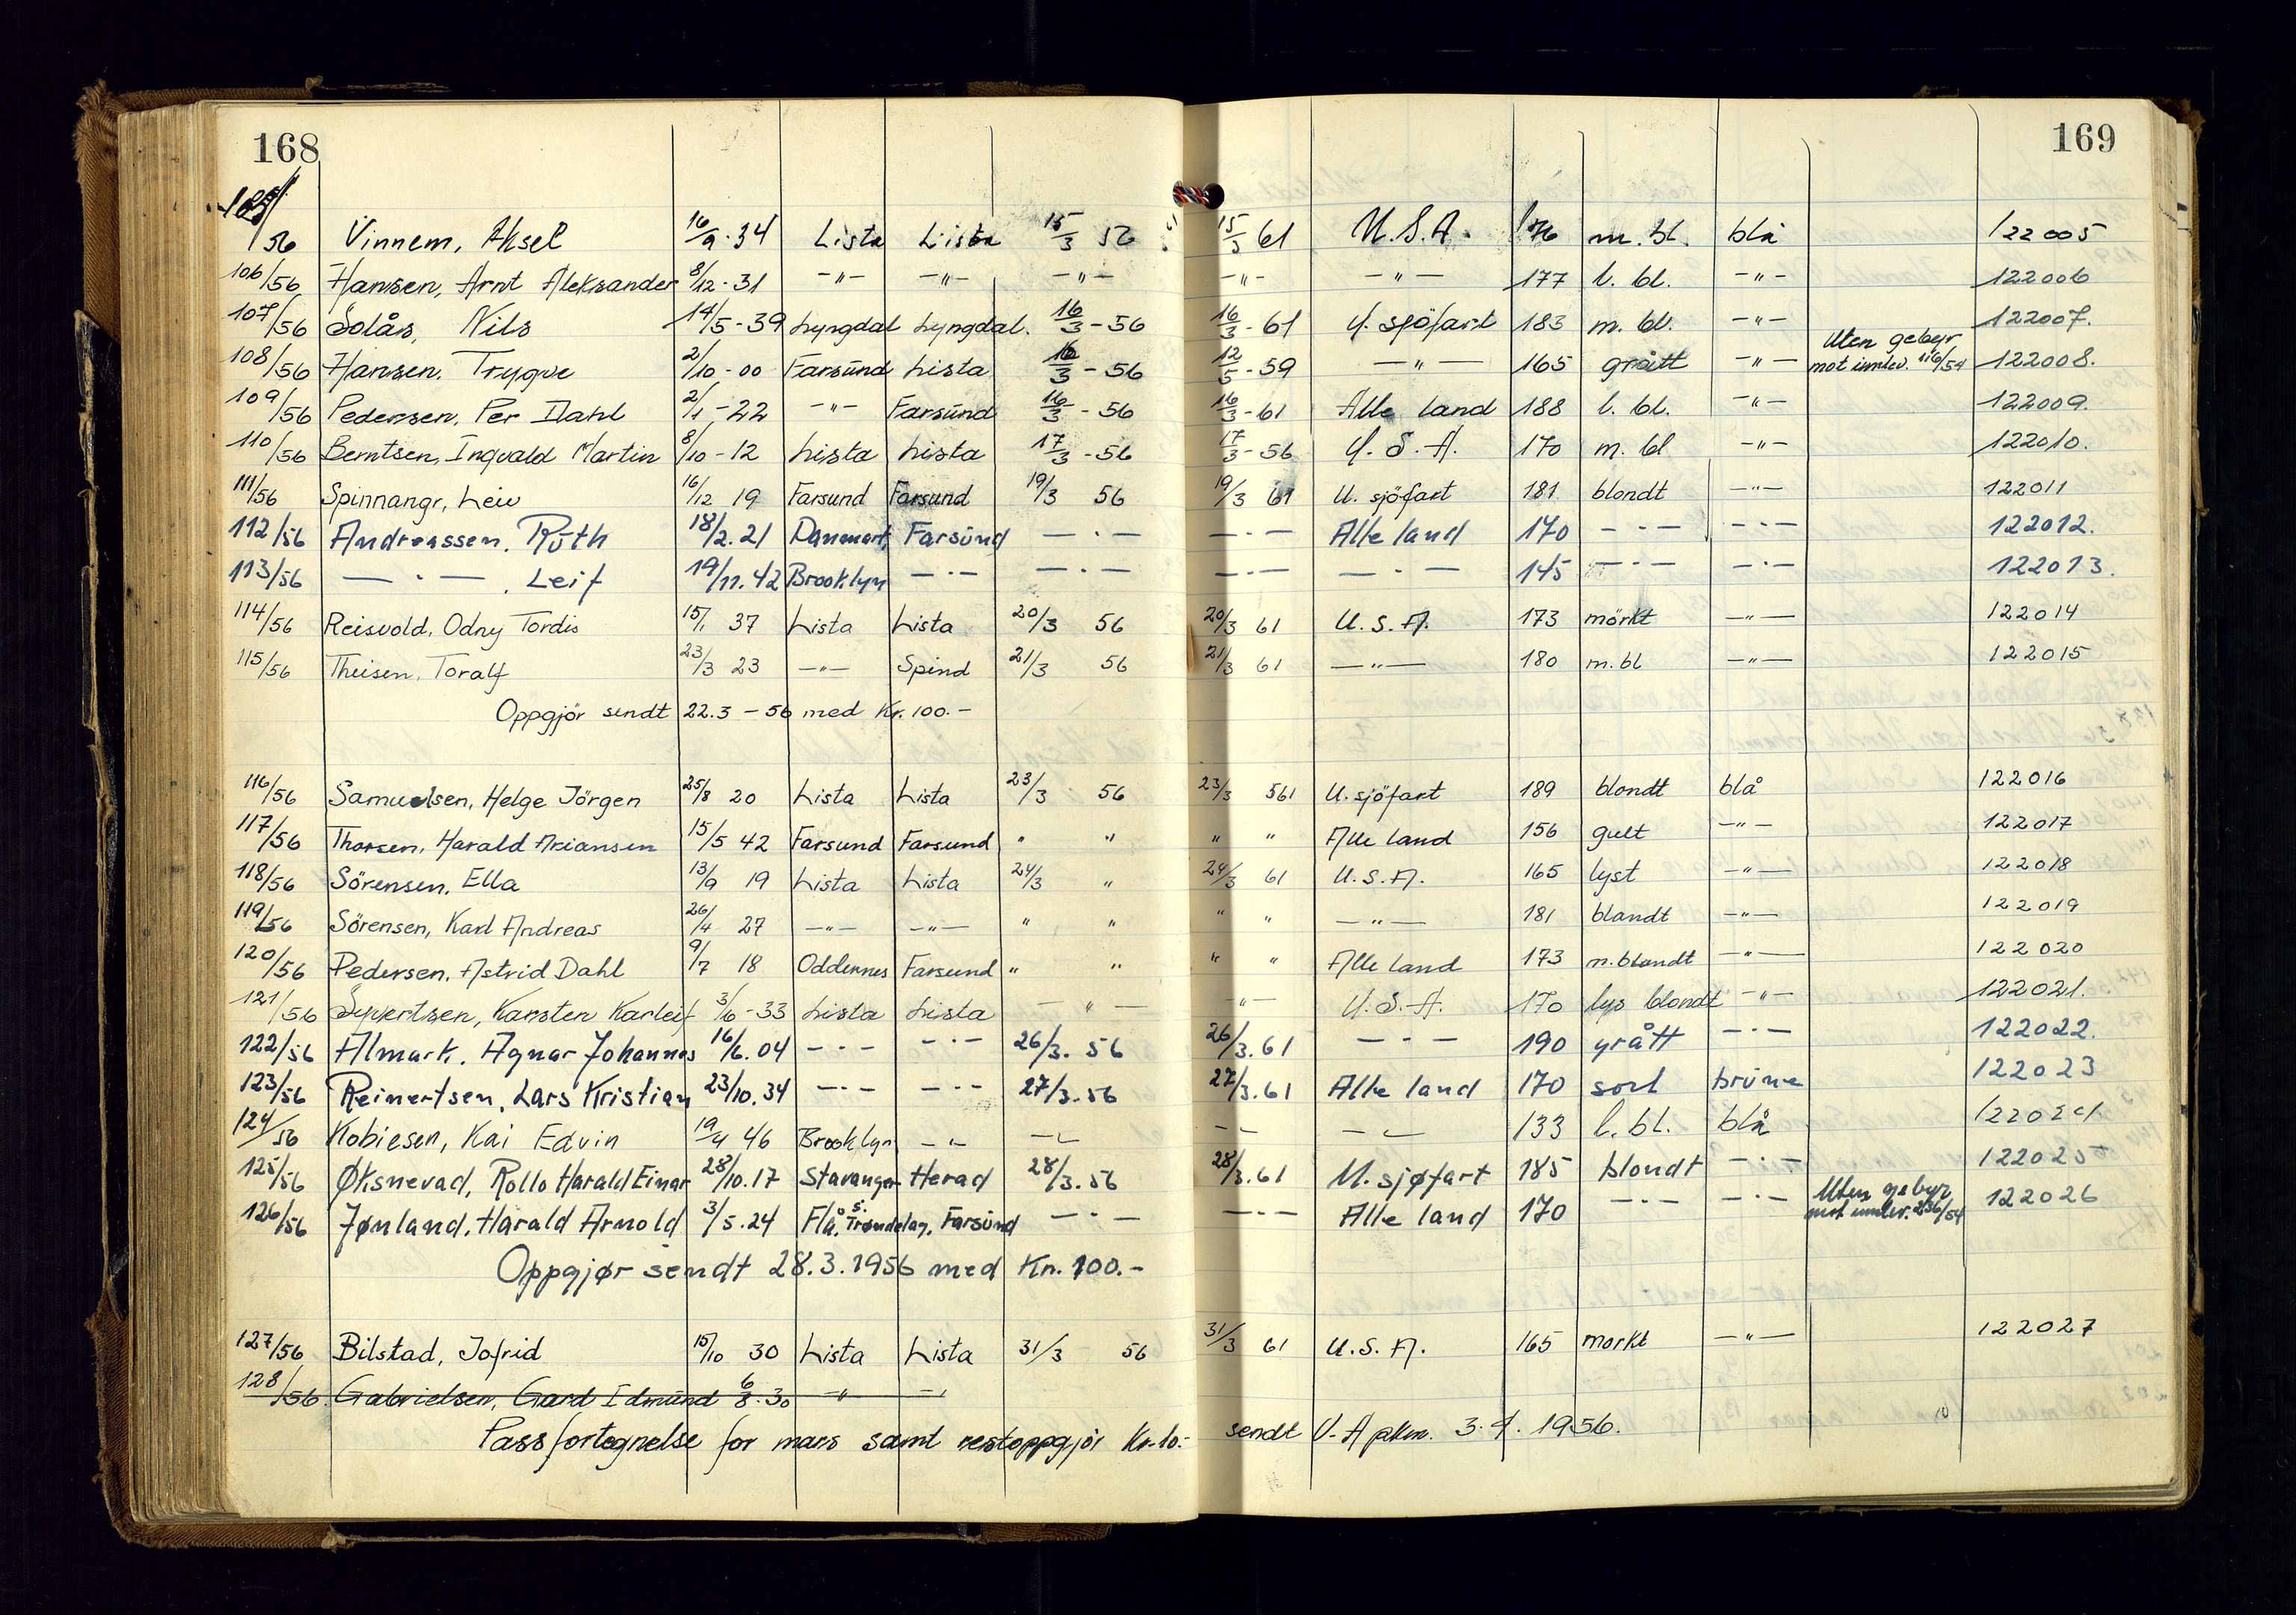 168 169
105/56 Vinnem, Aksel 16/9-34 Lista Lista 15/3 56 15/3 61 U.S.A. 176 m.bl. blå 122005
106/56 Hansen, Arnt Aleksander 8/12-31 -"- -"- -"- -"- -"- 177 l. bl. -"- 122006
107/56 Solås, Nils 14/5-39 Lyngdal Lyngdal. 16/3-56 16/3-61 U. sjöfart 183 m. bl. -"- 122007.
108/56 Hansen, Trygve 2/10-00 Farsund Lista 16/3-56 12/5-59 -"- 165 grått -"- Uten gebyr mot innlev. 116/54 122008.
109/56 Pedersen, Per Dahl 2/1-22 -"- Farsund 16/3-56 16/3-61 Alle land 188 l. bl. -"- 122009.
110/56 Berntsen, Ingvald Martin 8/10-12 Lista Lista 17/3-56 17/3-56 U.S.A. 170 m. bl -"- 122010.
111/56 Spinnangr, Leiv 16/12 19 Farsund Farsund 19/3 56 19/3 61 U. sjöfart 181 blondt -"- 122011
112/56 Andreassen, Ruth 18/2.21 Danmark Farsund -·- -·- Alle land 170 -·- -·- 122012.
113/56 -·- , Leif 19/11.42 Brooklyn -·- -·- -·- -·- 145 -·- -·- 122013.
114/56 Reisvold, Odny Tordis 15/1 37 Lista Lista 20/3 56 20/3 61 U.S.A. 173 mörkt -"- 122014
115/56 Theisen, Toralf 23/3 23 -"- Spind 21/3 56 21/3 61 -"- 180 m.bl -"- 122015
Oppgjör sendt 22.3-56 med Kr. 100.-
116/56 Samuelsen, Helge Jörgen 25/8 20 Lista Lista 23/3 56 23/3 561 U.sjöfart 189 blondt blå 122016
117/56 Thorsen, Harald Ariansen 15/5 42 Farsund Farsund " " " " Alle land 156 gult -"- 122017
118/56 Sörensen, Ella 13/9 19 Lista Lista 24/3 " 24/3 61 U.S.A. 165 lyst -"- 122018
119/56 Sörensen, Karl Andreas 26/4 27 -"- -"- " " " " -"- 181 blondt -"- 122019
120/56 Pedersen, Astrid Dahl 9/7 18 Oddernes Farsund " " " " Alle land 173 m.blondt -"- 122020
121/56 Syvertsen, Karsten Karleif 3/6-33 Lista Lista -"- -"- U.S.A. 170 lys blondt -"- 122021.
122/56 Almark, Agnar Johannes 16/6.04 -·- -·- 26/3.56 26/3.61 -·- 190 grått -·- 122022.
123/56 Reinertsen, Lars Kristian 23/10.34 -·- -·- 27/3.56 27/3.61 Alle land 170 sort brune 122023
124/56 Kobiesen, Kai Edvin 19/4 46 Brooklyn -"- -"- -"- -"- 133 l. bl. blå 122024
125/56 Øksnevad, Rollo Harald Einar 28/10.17 Stavanger Herad 28/3.56 28/3.61 U.sjøfart 185 blondt -·- 122025
126/56 Jønland, Harald Arnold 3/5.24 Flå, S. Trøndelag, Farsund -·- -·- Alle land 170 -·- -·- Uten gebyr mot innlev. 236/54 122026
Oppgjør sendt 28.3.1956 med Kr. 100.-
127/56 Bilstad, Jofrid 15/10 30 Lista Lista 31/3 56 31/3 61 U.S.A. 165 morkt -"- 122027
128/56. Gabrielsen, Gard Edmund 6/8.30 -"- -"-
Passfortegnelse for mars samt restoppgjör Kr.10.- sendt 3.4.1956.